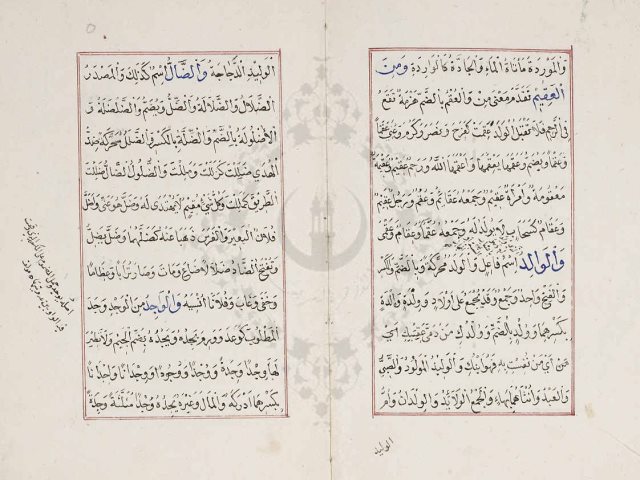 والموردة مأتاة الماء والجادة كالواردة ومن
العقيم تقدم معنى من والعقم بالضم هزمة تقع
في الرحم فلا تقبل الولد عقمت كفرح ونصر وكرم وعنى عقما
وعقما ويضم وعقمها يعقمها واعقمها الله ورحم عقيم وعقيمة
معقومة وامرأة عقيم وجمعه عقائم وعقم ورجل عقيم
وعقام كسحاب لا يولد له وجمعه عقماء وعقام وعقمى
والوالد اسم فاعل والولد محركة وبالضم والكسر
والفتح واحد وجمع وقد يجمع على اولاد وولدة والدة
بكسرهما وولد بالضم وولدك من دمى عقبيك اي
من اي من نفست به فهو ابنك والوليد المولود والصبي
والعبد وانثاهما بهاء والجمع الولائد والولدان وام
الوليد
الوليد الدجاجة والضال اسم كذلك والمصدر
الضلال والضلالة والضل ويضم والضلضلة و
الاضلولة بالضم والضلة بالكسر والضلل محركة ضد
الهدى ضللت كزللت ومللت والضلول الضال وضللت
الطريق كمللت وكل شئ مقيم لا يهتدى له وضل هو عنى واضل
فلان البعير والفرس ذهبا عنه كضلهما وضل يضل
وتفتح الضاد ضلالا ضاع ومات وصار ترابا وعظاما
وخفى وغاب وفلانا انسيه والواجد من الوجد وجد
المطلوب كوعد وورم يجده ويجده بضم الجيم ولا نظير
لها وجدا وجدة ووجدا ووجودا ووجدانا واجدانا
بكسرهما ادركه والمال وغيره يجده وجدا مثلثة وجدة